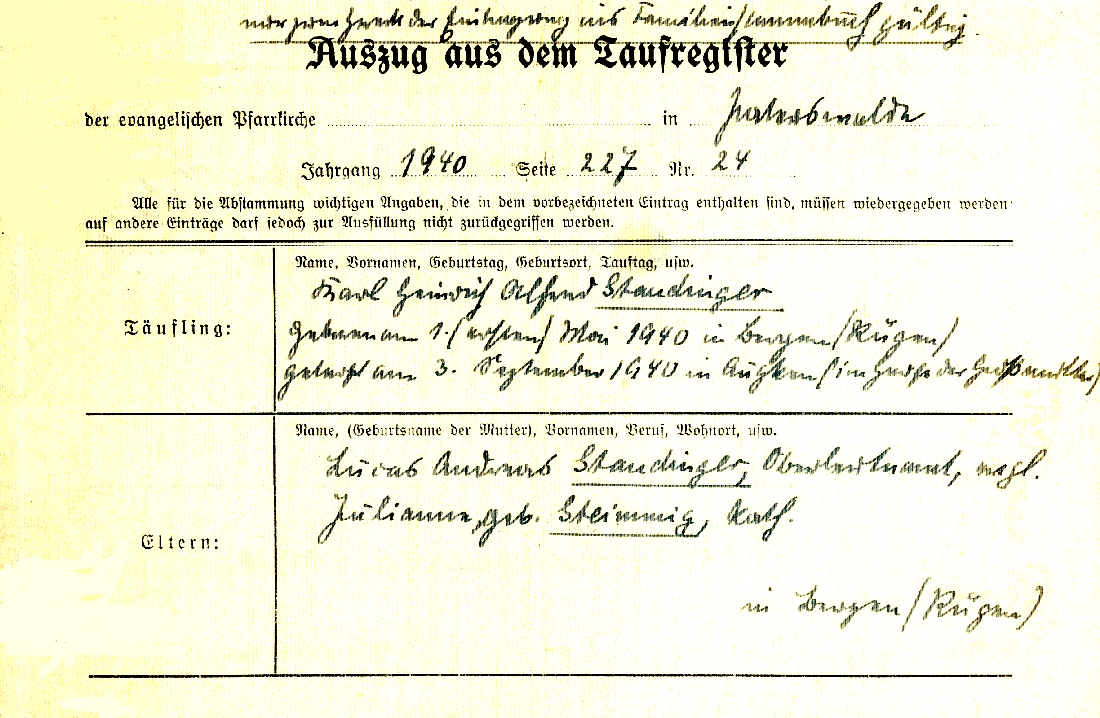 nur zum Zweck der Eintragung ins Familienstammbuch gültig.
Auszug aus dem Taufregister
der evangelischen Pfarrkirche in Paterswalde
Jahrgang 1940 Seite 227 Nr. 24
Alle für die Abstammung wichtigen Angaben, die in dem vorbezeichneten Eintrag enthalten sind, müssen wiedergegeben werden
auf andere Einträge darf jedoch zur Ausfüllung nicht zurückgegriffen werden.
Name, Vornamen, Geburtstag, Geburtsort, Tauftag, usw.
Karl Heinrich Alfred Staudinger
Täufling:
geboren am 1. (ersten) Mai 1940 in Bergen (Rügen)
getauft am 3. September 1940 in (im Hause der Großmutter)
Name, (Geburtsname der Mutter), Vornamen, Beruf, Wohnort, usw.
Lucas Andreas Staudinger, Oberleutnant, evgl.
Julianne, geb. Steimmig, kath.
Eltern:
in Bergen (Rügen)